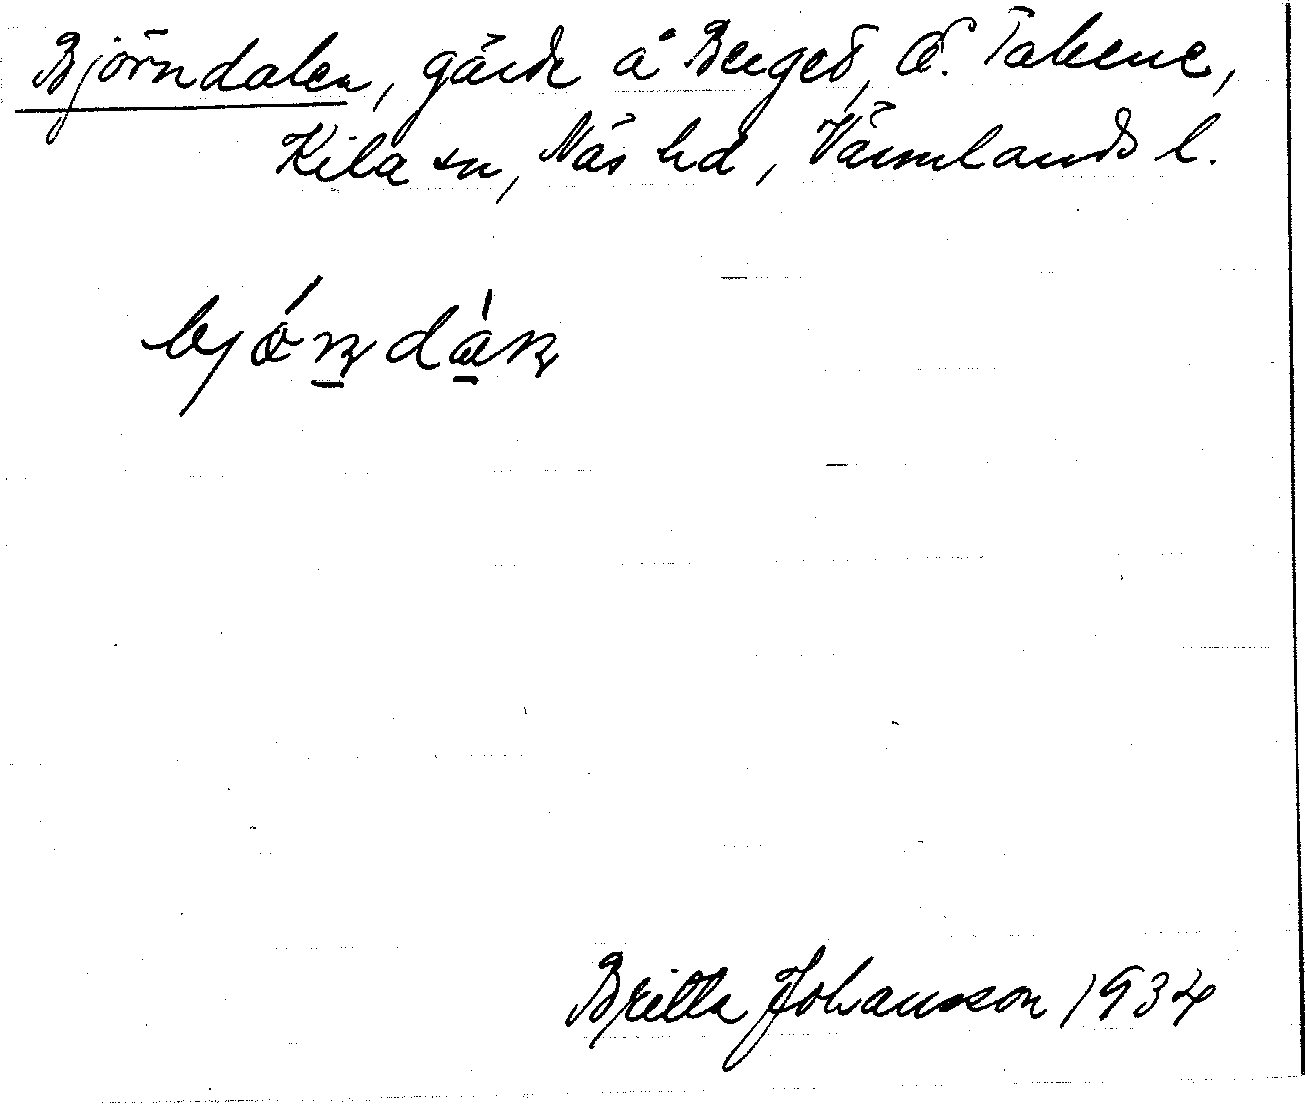 Björndalen, gärde å Berget, Ö. Takene,
Kila sn, Näs hd, Värmlands l.
Britta Johansson 1934